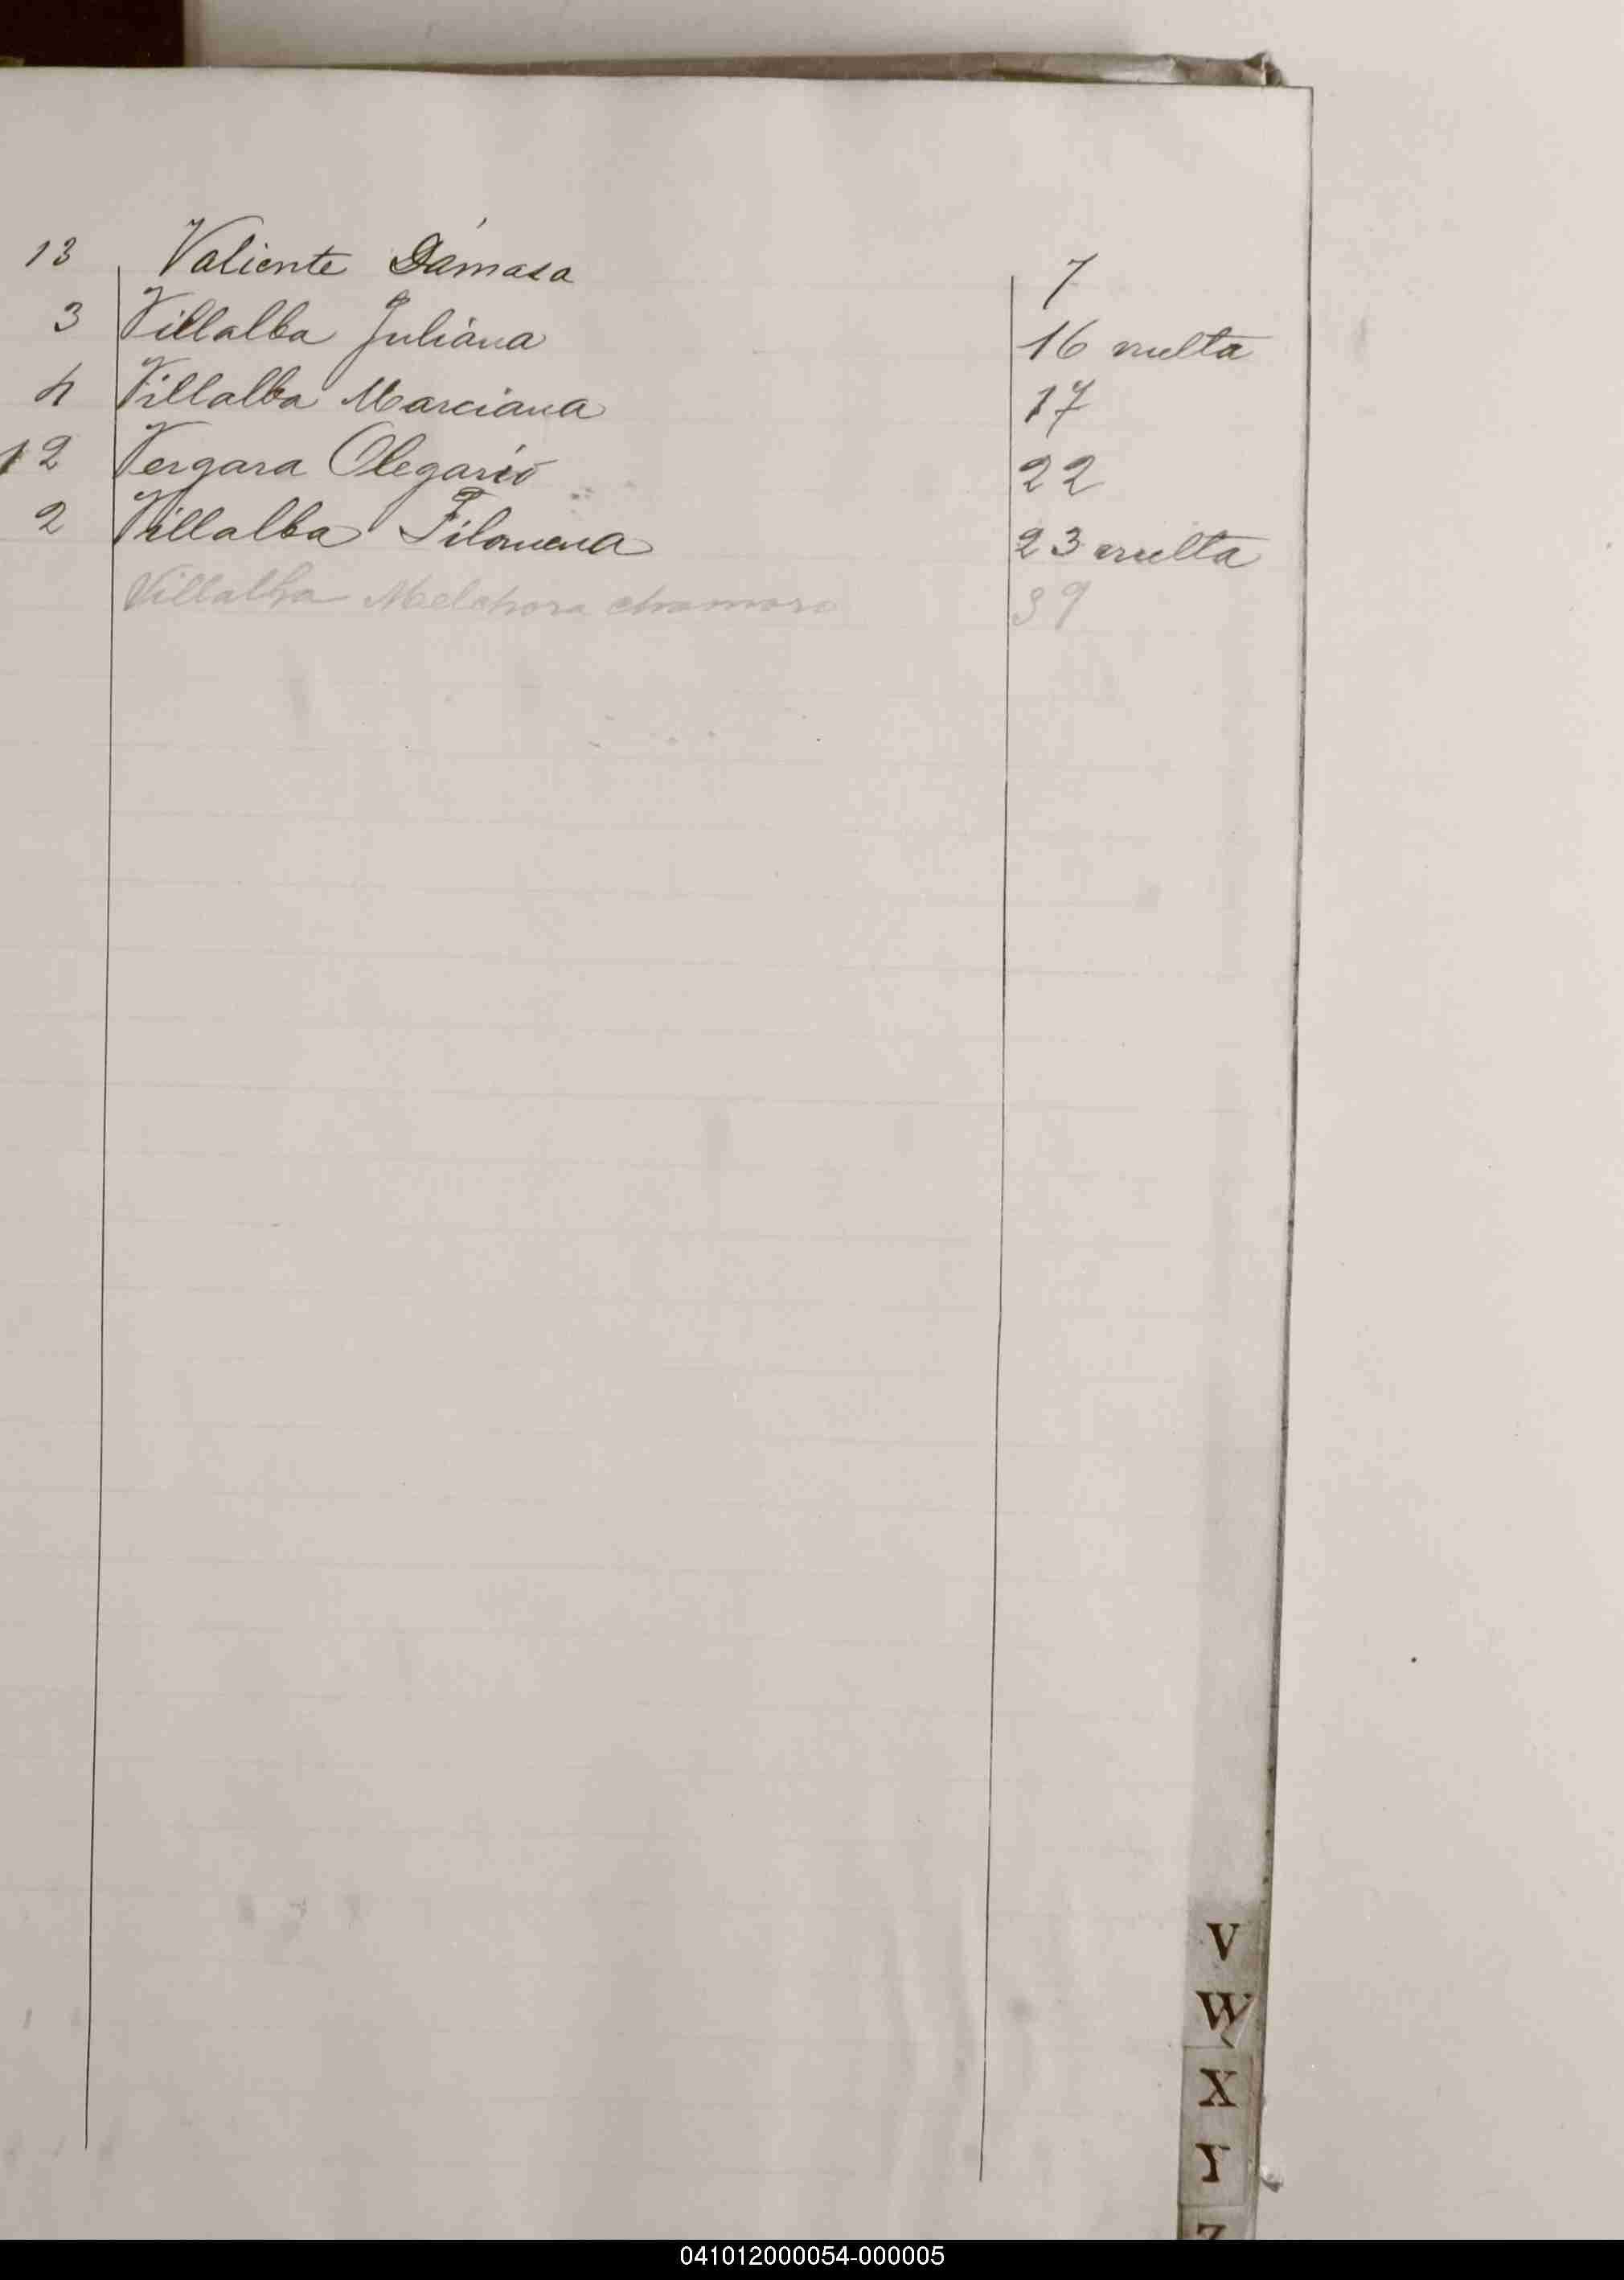 13 Valiente Dámasa 7
3 Villalba Juliana 16 vuelta
4 Villalba Marciana 17
12 Vergara Olegario 22
2 Villalba Filomena 23 vuelta
Villalba Melchora chamorro 39
V
W
X
Y
Z
041012000054-000005